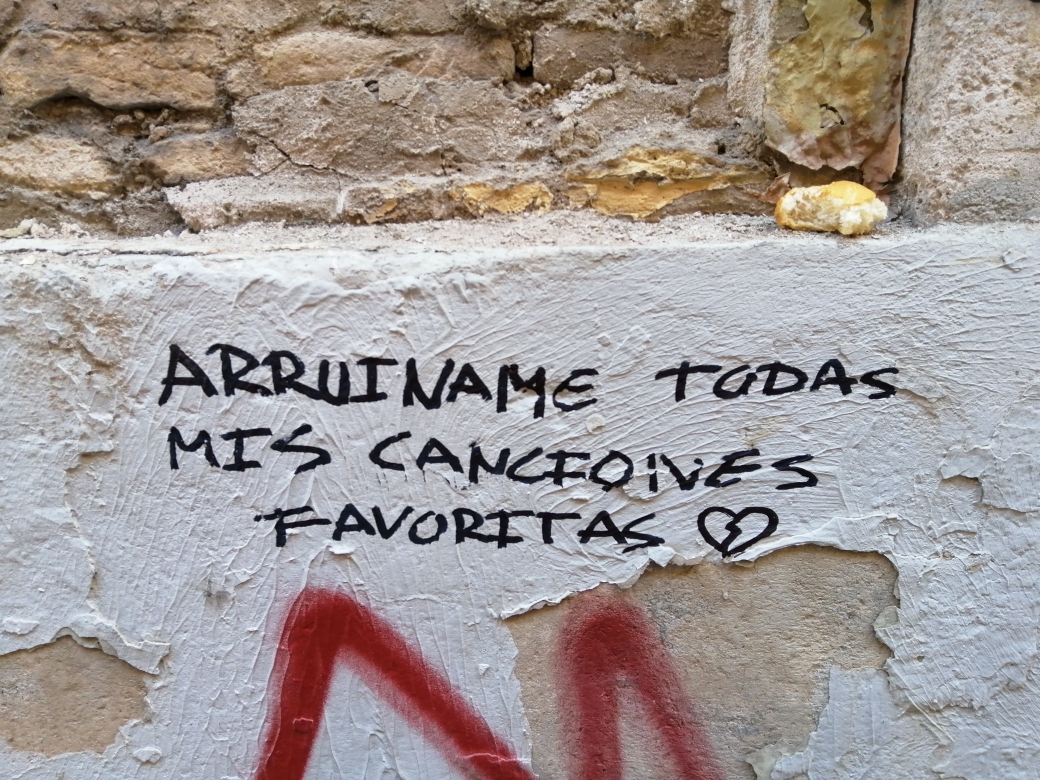 ARRUINAME TODAS
MIS CANCIONES
FAVORITAS